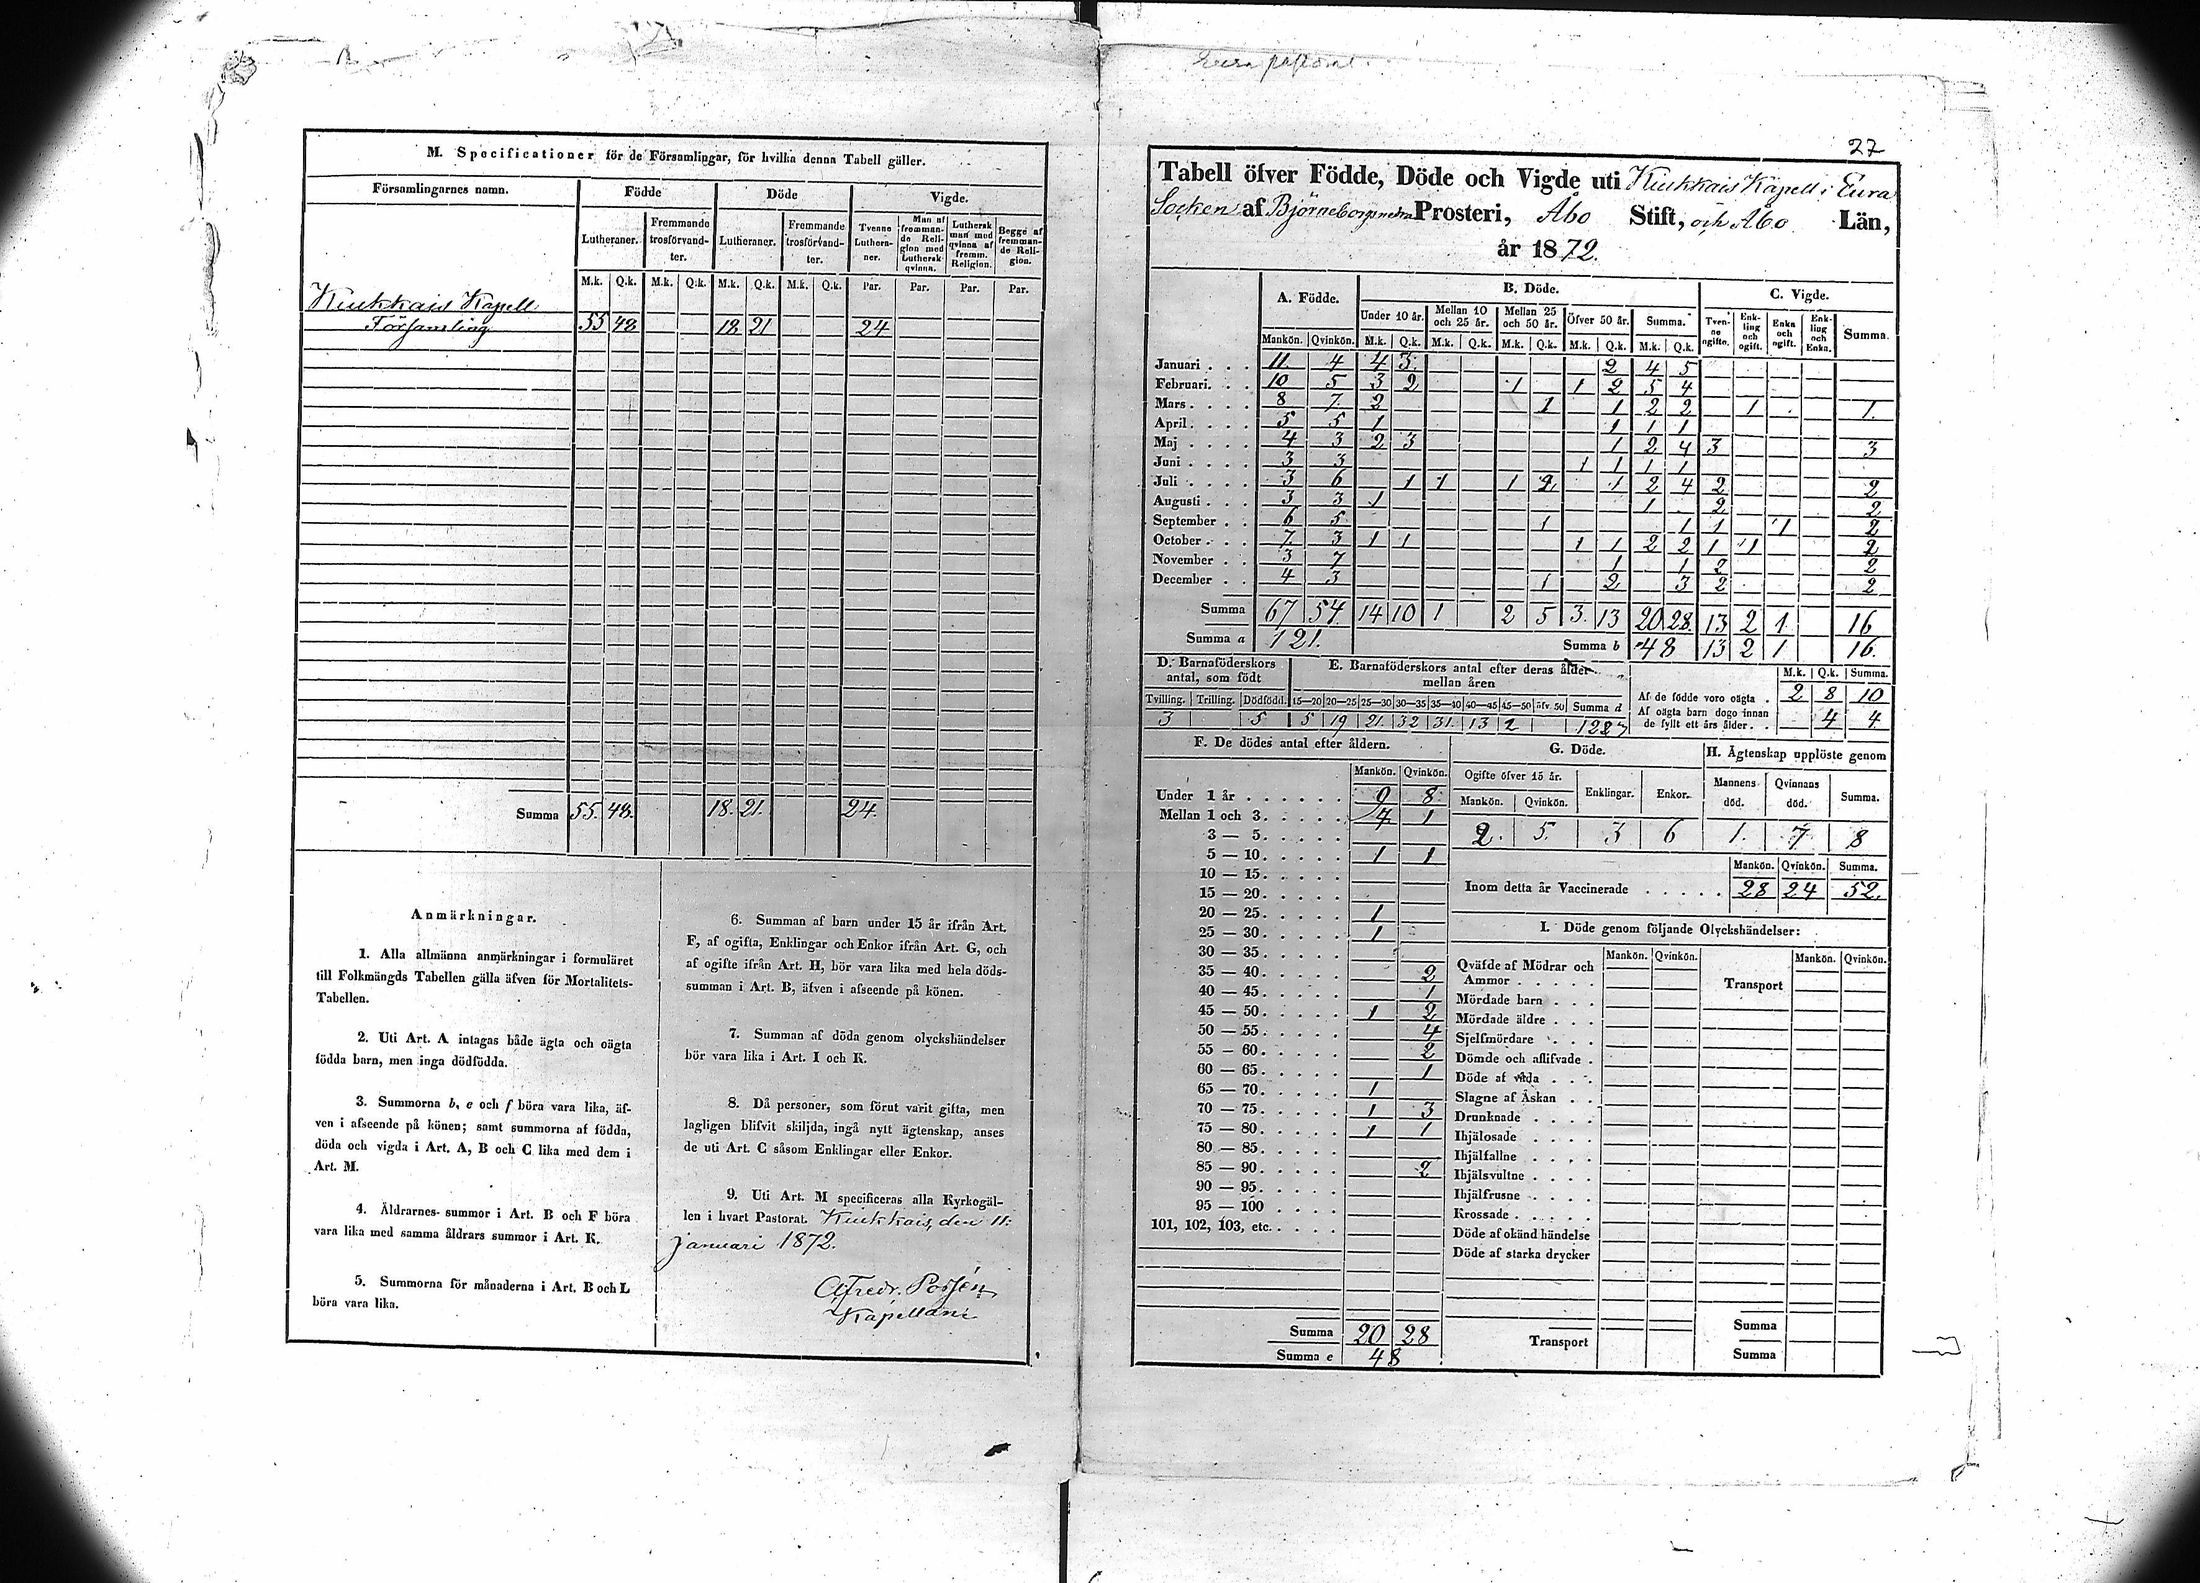 Eura pastorat.
M. Specificationer för de Församlingar, för hvilka denna Tabell gäller.
Församlingarnes namn. Födde Döde Vigde.
Lutheraner. Fremmande trosförvandter. Lutheraner. Fremmande trosförvandter. Tvenne Lutheraner. Man af fremmande Religion med Luthersk qvinna. Luthersk man med qvinna af fremm. Religion. Begge af fremmande Religion.
M.k. Q.k. M.k. Q.k. M.k. Q.k. M.k. Q.k. Par. Par. Par. Par.
Kiukkais Kapell
Församling 55 48 18 21 24
Summa 55. 48. 18. 21. 24.
Anmärkningar.
1. Alla allmänna anmärkningar i formuläret
till Folkmängds Tabellen gälla äfven för Mortalitets-
Tabellen.
2. Uti Art. A intagas både ägta och oägta
födda barn, men inga dödfödda.
3. Summorna b, e och f böra vara lika, äf-
ven i afseende på könen; samt summorna af födda,
döda och vigda i Art. A, B och C lika med dem i
Art. M.
4. Äldrarnes- summor i Art. B och F böra
vara lika med samma åldrars summor i Art. K.
5. Summorna för månaderna i Art. B och L
böra vara lika.
6. Summan af barn under 15 år ifrån Art.
F, af ogifta, Enklingar och Enkor ifrån Art. G, och
af ogifte ifrån Art. H, bör vara lika med hela döds-
summan i Art. B, äfven i afseende på könen.
7. Summan af döda genom olyckshändelser
bör vara lika i Art. I och K.
8. Då personer, som förut varit gifta, men
lagligen blifvit skiljda, ingå nytt ägtenskap, anses
de uti Art. C såsom Enklingar eller Enkor.
9. Uti Art. M specificeras alla Kyrkogäl-
len i hvart Pastorat. Kiukkais, den 11.
januari 1872.
Alfredr. Porsén
Kapellani
27
Tabell öfver Födde, Döde och Vigde uti Kiukkais Kapell i Eura
Socken af Björneborgs nedra Prosteri, Åbo Stift, och Åbo Län,
år 1872.
A. Födde. B. Döde. C. Vigde.
Under 10 år. Mellan 10 och 25 år. Mellan 25 och 50 år. Öfver 50 år. Summa. Tvenne ogifte. Enkling och ogift. Enka och ogift. Enkling och Enka. Summa.
Mankön. Qvinkön. M.k. Q.k. M.k. Q.k. M.k. Q.k. M.k. Q.k. M.k. Q.k.
Januari . . . 11. 4 4 3. 2 4 5
Februari. . . 10 5 3 2 1 1 2 5 4
Mars . . . . 8 7. 2 1 1 2 2 1 1.
April . . . . 5 5 1 1 1 1
Maj . . . . 4 3 2 3 1 2 4 3 3
Juni . . . . 3 3 1 1 1 1
Juli . . . . 3 6 1 1 1 2 1 2 4 2 2
Augusti . . . 3 3 1 1 2 2
September . . 6 5 1 1 1 1 2
October . . . 7. 3 1 1 1 1 2 2 1 1 2
November . . 3 7 1 1 2 2
December . . 4 3 1 2 3 2 2
Summa 67 54 14 10 1 2 5 3. 13 20 28. 13 2 1. 16
Summa a 121. Summa b 48 13 2 1 16.
D. Barnaföderskors antal, som födt
E. Barnaföderskors antal efter deras ålder mellan åren
M.k. Q.k. Summa.
Tvilling. Trilling. Dödfödd. 15—20 20—25 25—30 30—35 35—40 40—45 45—50 öfv. 50 Summa d
3 5 5 19 21. 32 31. 13 2
Af de födde voro oägta . 2 8 10
Af oägta barn dogo innan
de fyllt ett års ålder. . 4 4
F. De dödes antal efter åldern.
Mankön. Qvinkön.
Under 1 år . . . . . . 9 8
Mellan 1 och 3. . . . . 7. 1
3 — 5. . . . .
5 — 10. . . . . 1 1
10 — 15. . . . .
15 — 20. . . . .
20 — 25. . . . . 1
25 — 30. . . . . 1
30 — 35. . . . .
35 — 40. . . . . 2
40 — 45. . . . . 1
45 — 50. . . . . 1 2
50 — 55. . . . . 4
55 — 60. . . . . 2
60 — 65. . . . . 1
65 — 70. . . . . 1
70 — 75. . . . . 1 3
75 — 80. . . . . 1 1
80 — 85. . . . .
85 — 90. . . . . 2
90 — 95. . . . .
95 — 100 . . . . .
101, 102, 103, etc. . . . .
Summa 20 28
Summa e 48
G. Döde.
Ogifte öfver 15 år. Enklingar. Enkor.
Mankön. Qvinkön.
2. 5. 3 6
H. Ägtenskap upplöste genom
Mannens död. Qvinnans död. Summa.
1. 7. 8
Mankön. Qvinkön. Summa.
Inom detta år Vaccinerade . . . . . 28 24 52.
I. Döde genom följande Olyckshändelser:
Mankön. Qvinkön. Mankön. Qvinkön.
Qväfde af Mödrar och
Ammor . . . . . Transport
Mördade barn . . .
Mördade äldre . . .
Sjelfmördare . . .
Dömde och aflifvade .
Döde af våda . . .
Slagne af Åskan . .
Drunknade . . . .
Ihjälosade . . . .
Ihjälfallne . . . .
Ihjälsvultne . . . .
Ihjälfrusne . . . .
Krossade . . . . .
Döde af okänd händelse
Döde af starka drycker
Summa
Transport
Summa